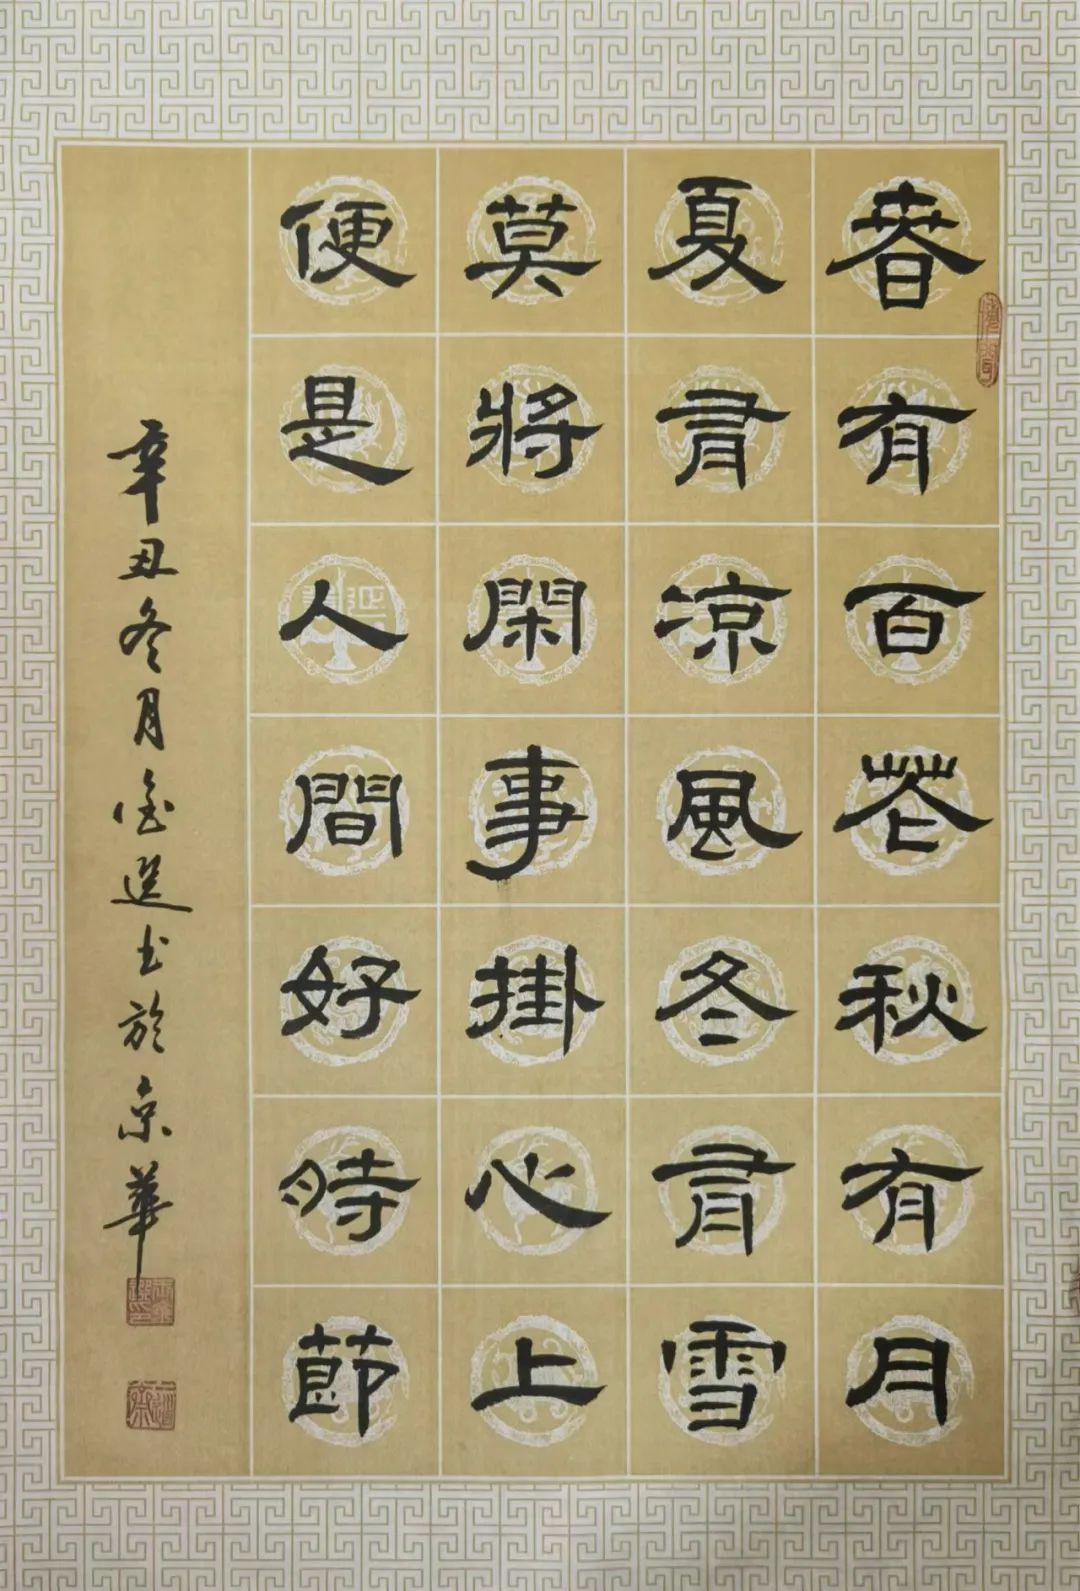 春有百花秋有月
夏有凉風冬有雪
莫將閑事掛心上
便是人間好時節
辛丑冬月金選書於京華